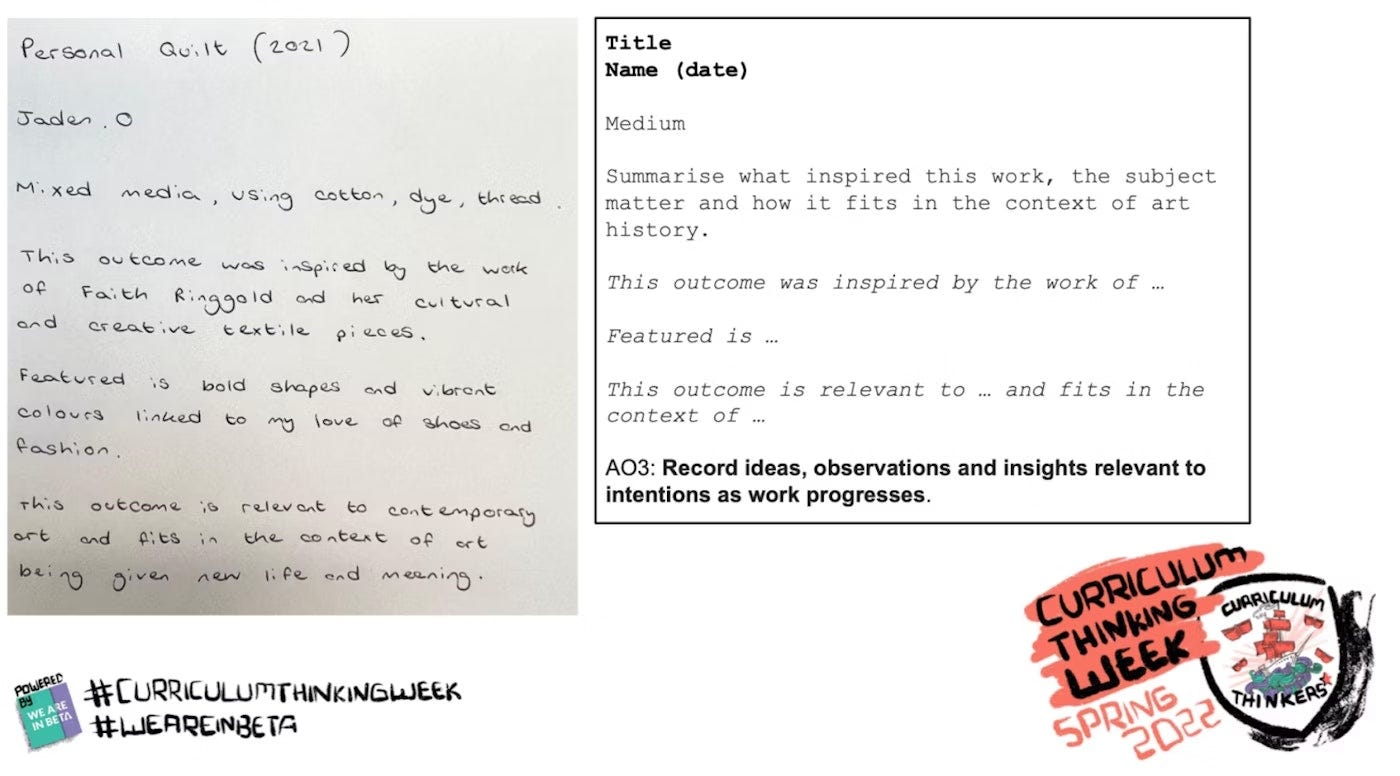 Personal Quilt (2021)
Jaden. O
Mixed media, using cotton, dye, thread.
This outcome was inspired by the work
of Faith Ringgold and her cultural
and creative textile pieces.
Featured is bold shapes and vibrant
colours linked to my love of shoes and
fashion.
This outcome is relevant to contemporary
art and fits in the context of art
being given new life and meaning.
Title
Name (date)
Medium
Summarise what inspired this work, the subject
matter and how it fits in the context of art
history.
This outcome was inspired by the work of …
Featured is …
This outcome is relevant to … and fits in the
context of …
AO3: Record ideas, observations and insights relevant to
intentions as work progresses.
POWERED
BY
WE ARE
IN BETA
#CURRICULUMTHINKINGWEEK
#WEAREINBETA
CURRICULUM
THINKING
WEEK
SPRING
2022
CURRICULUM
THINKERS